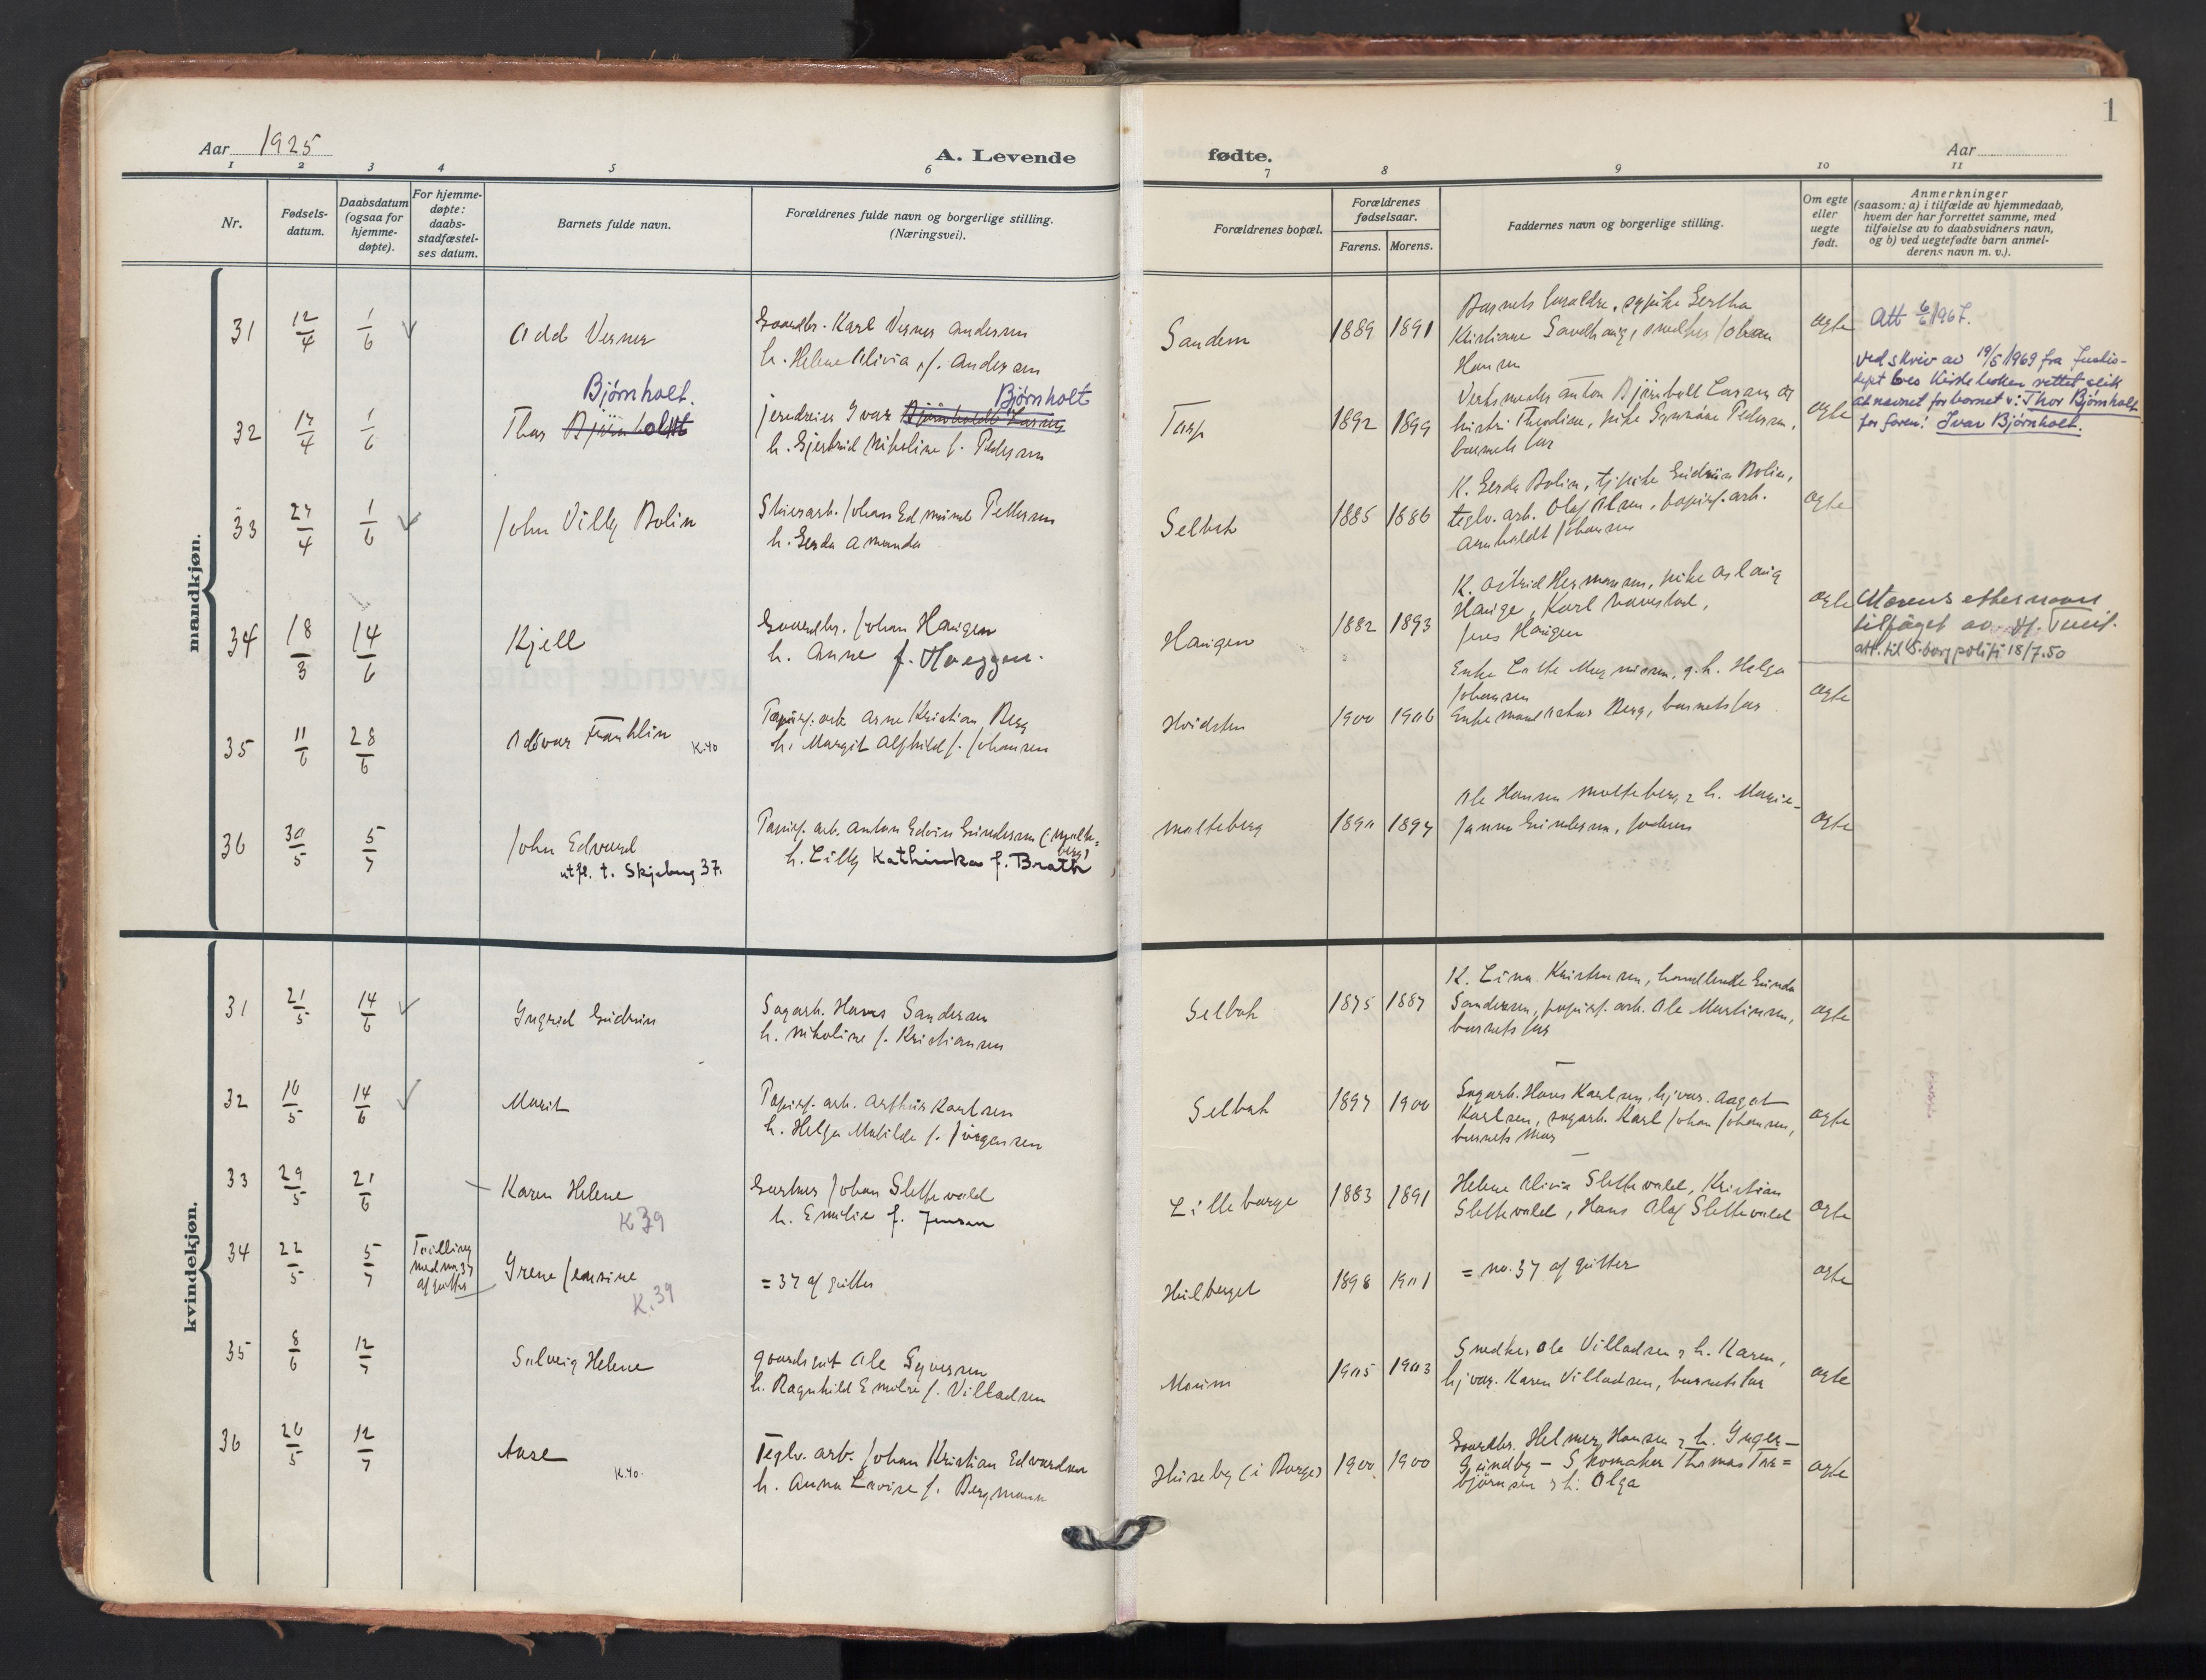 1
Aar 1925
A. Levende
fødte.
Aar
1 2 3 4 5 6 7 8 9 10 11
Nr.
Fødsels-
datum.
Daabsdatum
(ogsaa for
hjemme-
døpte).
For hjemme-
døpte:
daabs-
stadfæstel-
ses datum.
Barnets fulde navn.
Forældrenes fulde navn og borgerlige stilling.
(Næringsvei).
Forældrenes bopæl.
Forældrenes
fødselsaar.
Farens. Morens.
Faddernes navn og borgerlige stilling.
Om egte
eller
uegte
født.
Anmerkninger
(saasom: a) i tilfælde av hjemmedaab,
hvem der har forrettet samme, med
tilføielse av to daabsvidners navn,
og b) ved uegtefødte barn anmel-
derens navn m. v.).
mandkjøn.
31 12/4 1/6 Odd Verner
Gaardbr. Karl Verner Andersen
h. Helene Olivia f. Andersen
Sandem 1889 1891
Kristiane
Johan
Hansen
egte
Att 6/6 1967.
32 17/4 1/6 Thor Bjørnholt
Bjørnholt.
Ivar Bjørnholt Larsen
Bjørnholt
h. Gjertrud Nikoline f. Pedersen
Torp 1892 1899
Anton Bjørnholt Larsen og
hustru Theodine, pike Pedersen,
barnets far
egte
Ved skriv av 19/5 1969 fra Justis-
dept. bes Kirkeboken rettet slik
at navnet for barnet v: Thor Bjørnholt
for faren: Ivar Bjørnholt.
33 27/4 1/6 John Villy Bolin
Johan Edmund Pettersen
h. Gerda Amanda
Selbak 1885 1886
K. Gerda Bolin, tj.pike Gudrun Bolin,
teglv. arb. Olaf Olsen, papirf. arb.
Arnholdt Johansen
egte
34 18/3 14/6 Kjell
Gaardbr. Johan Haugen
h. Anne f. Hoeggen.
Haugen 1882 1893
K. Astrid Hermansen, pike Aslaug
Hauge, Karl Navestad,
Jens Haugen
egte
Morens etternavn
tilføiet av
att. til S.borg politi 18/7.50
35 11/6 28/6 Oddvar Franklin
K.40
Papirf. arb. Arne Kristian Berg
h. Margit Alfhild f. Johansen
Hvidsten 1900 1906
Enke Magnussen, g. h. Helga
Johansen
Enkemand Berg, barnets far
egte
36 30/5 5/7 John Edvard
utfl. t. Skjeberg 37.
Papirf. arb. Anton Edvin Gundersen (: Molte-
berg)
h. Lilly Kathinka f. Brath
Molteberg 1890 1897
Ole Hansen Molteberg & h. Marie-
Janna Gundersen, faderen
egte
kvindekjøn.
31 21/5 14/6 Ingrid Gudrun
Sagarb. Hans Sandersen
h. Nikoline f. Kristiansen
Selbak 1875 1887
K. Lina Kristensen, handlende Gunda
Sandersen, papirf. arb. Ole Martinsen,
barnets far
egte
32 10/5 14/6 Marit
Papirf. arb. Arthur Karlsen
h. Helga Matilde f. Jörgensen
Selbak 1897 1900
Sagarb. Hans Karlsen, hj.vær. Aagot
Karlsen, sagarb. Karl Johan Johansen,
barnets mor
egte
33 29/5 21/6 Karen Helene
K 39
Gartner Johan Slettevold
h. Emilie f. Jensen
Lilleborge 1883 1891
Helene Olivia Slettevold, Kristian
Slettevold, Hans Olaf Slettevold
egte
34 22/5 5/7 Tvilling
med no. 37
af gutter
Irene Jensine
K.39
= 37 af gutter
1898 1901
= no. 37 af gutter
egte
35 8/6 12/7 Solveig Helene
Ole Syversen
h. Ragnhild Emilie f. Villadsen
Moum 1905 1903
Snedker Ole Villadsen & h. Karen,
hj.vær. Karen Villadsen, barnets far
egte
36 26/5 12/7 Aase
K.40.
Teglv. arb. Johan Kristian Edvardsen
h. Anna Lovise f. Bergmann
Huseby (i Borge) 1900 1900
Gaardbr. Helmer Hansen & h. Inger-
Grindby - Skomaker Thomas Tor=
björnsen & h. Olga
egte